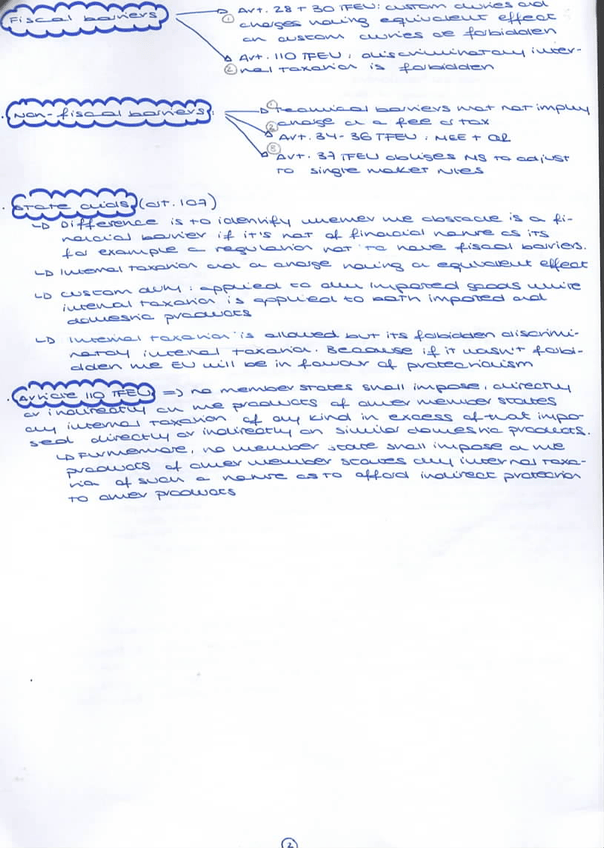 Fiscal barriers
① Art. 28 + 30 TFEU: custom duties and
charges having equivalent effect
on custom duties are forbidden
② Art. 110 TFEU, discriminatory inter-
nal taxation is forbidden
Non-fiscal barriers:
① Technical barriers that not imply
charge or a fee or tax
② Art. 34-36 TFEU: MEE + QR
③ Art. 37 TFEU obliges MS to adjust
to single market rules
State aids (art. 107)
↳ Difference is to identify whether the obstacle is a fi-
nancial barrier if it's not of financial nature as its
for example a regulation not to have fiscal barriers.
↳ Internal taxation and a charge having a equivalent effect
↳ custom duty: applied to only imported goods while
internal taxation is applied to both imported and
domestic products
↳ Internal taxation is allowed but its forbidden discrimi-
natory internal taxation. Because if it wasn't forbi-
dden the EU will be in favour of protectionism
Article 110 TFEU => no member states shall impose, directly
or indirectly on the products of other member states
any internal taxation of any kind in excess of that impo-
sed directly or indirectly on similar domestic products.
↳ Furthermore, no member state shall impose on the
products of other member states any internal taxa-
tion of such a nature as to afford indirect protection
to other products
2